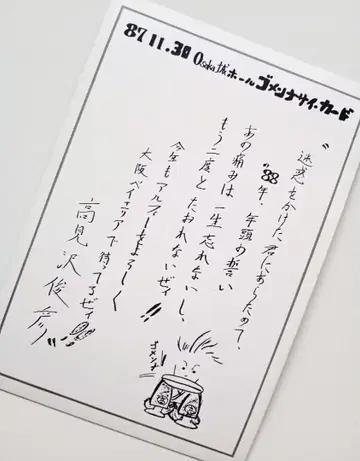 87 11.30 Osaka城ホール ゴメンナサイ・カード
"迷惑をかけた君にあらためて、
'88年、年頭の誓い
あの痛みは一生忘れないし、
もう二度とたおれないゼィ!!
今年もアルフィーをよろしく
大阪ベイエリアで待ってるゼィ!!"
高見沢俊彦
ゴメンナ